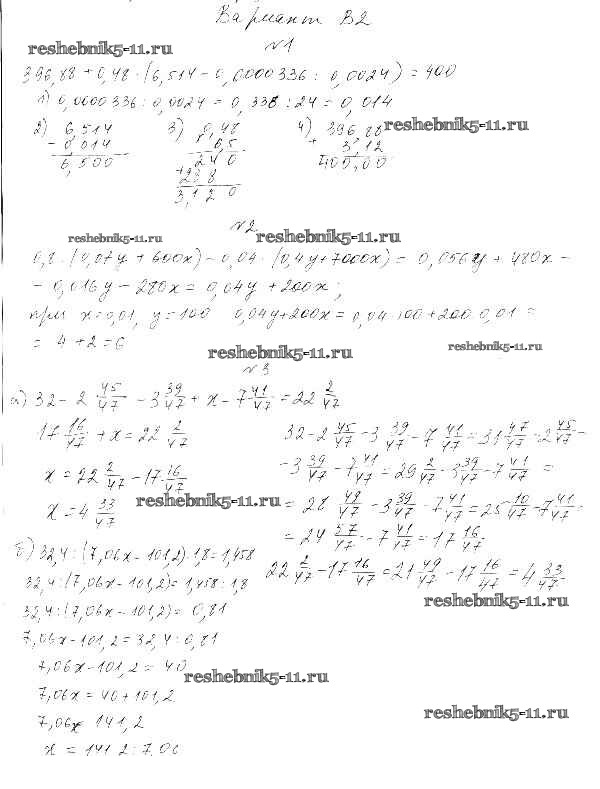 Вариант В2
reshebnik5-11.ru
№1
396,88 + 0,48 · (6,514 - 0,0000336 : 0,0024) = 400
1) 0,0000336 : 0,0024 = 0,336 : 24 = 0,014
2) 6,514 - 0,014 = 6,500
3) 0,48 · 6,5
240
+ 288
3,120
4) 396,88 + 3,12 = 400,00
reshebnik5-11.ru
№2
reshebnik5-11.ru
reshebnik5-11.ru
0,8 · (0,07y + 600x) - 0,04 · (0,4y + 7000x) = 0,056y + 480x -
- 0,016y - 280x = 0,04y + 200x;
при x=0,01, y=100 0,04y+200x = 0,04·100+200·0,01 =
= 4 + 2 = 6
reshebnik5-11.ru
reshebnik5-11.ru
№3
а) 32 - 2 45/47 - 3 39/47 + x - 7 41/47 = 22 2/47
17 16/47 + x = 22 2/47
x = 22 2/47 - 17 16/47
x = 4 33/47
32 - 2 45/47 - 3 39/47 - 7 41/47 = 31 47/47 - 2 45/47 -
- 3 39/47 - 7 41/47 = 29 2/47 - 3 39/47 - 7 41/47 =
= 28 49/47 - 3 39/47 - 7 41/47 = 25 10/47 - 7 41/47 =
= 24 57/47 - 7 41/47 = 17 16/47
22 2/47 - 17 16/47 = 21 49/47 - 17 16/47 = 4 33/47
reshebnik5-11.ru
reshebnik5-11.ru
б) 32,4 : (7,06x - 101,2) · 1,8 = 1,458
32,4 : (7,06x - 101,2) = 1,458 : 1,8
32,4 : (7,06x - 101,2) = 0,81
7,06x - 101,2 = 32,4 : 0,81
7,06x - 101,2 = 40
reshebnik5-11.ru
7,06x = 40 + 101,2
7,06x = 141,2
reshebnik5-11.ru
x = 141,2 : 7,06